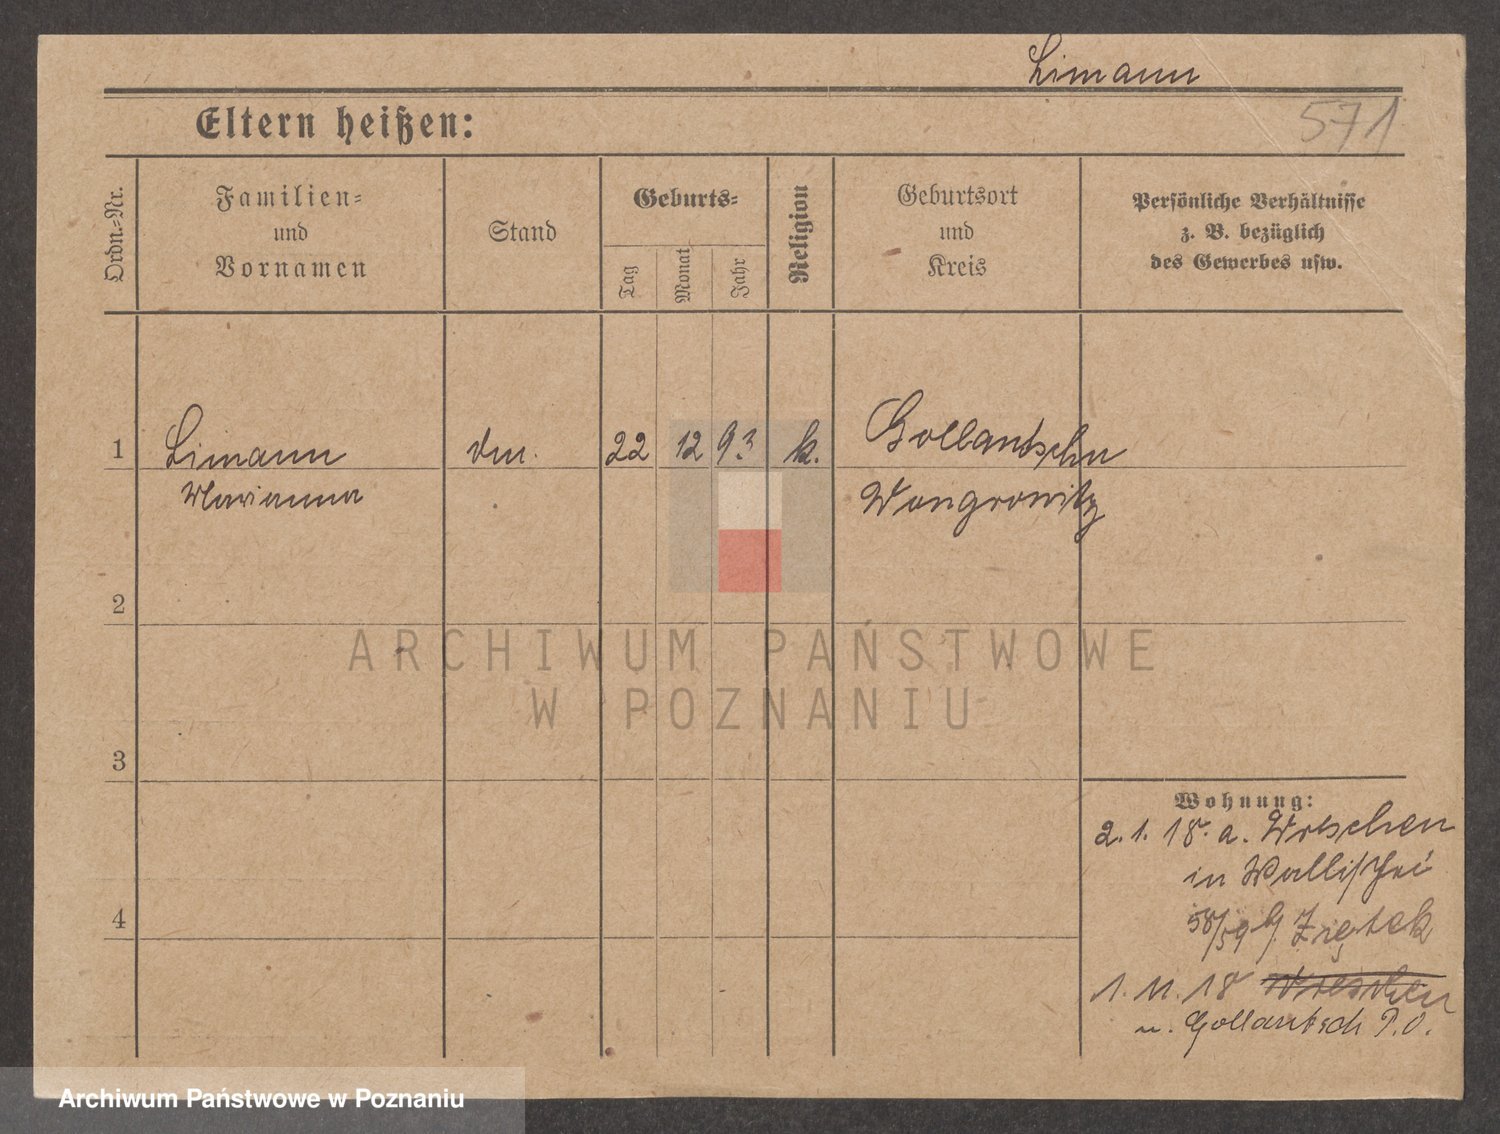 Limann
571
Eltern heißen:
Ordn.-Nr.
Familien-
und
Vornamen
Stand
Geburts-
Tag
Monat
Jahr
Religion
Geburtsort
und
Kreis
Persönliche Verhältnisse
z. B. bezüglich
des Gewerbes usw.
1 Limann 22 12 93 k. Gollantsch
Marianna Wongrowitz
2
3
4
Wohnung:
2. 1. 18. a. Wreschen
in Wallischei
58/59 b/ Ziętek
1. 11. 18 Wreschen
n. Gollantsch P.O.
ARCHIWUM PAŃSTWOWE
W POZNANIU
Archiwum Państwowe w Poznaniu